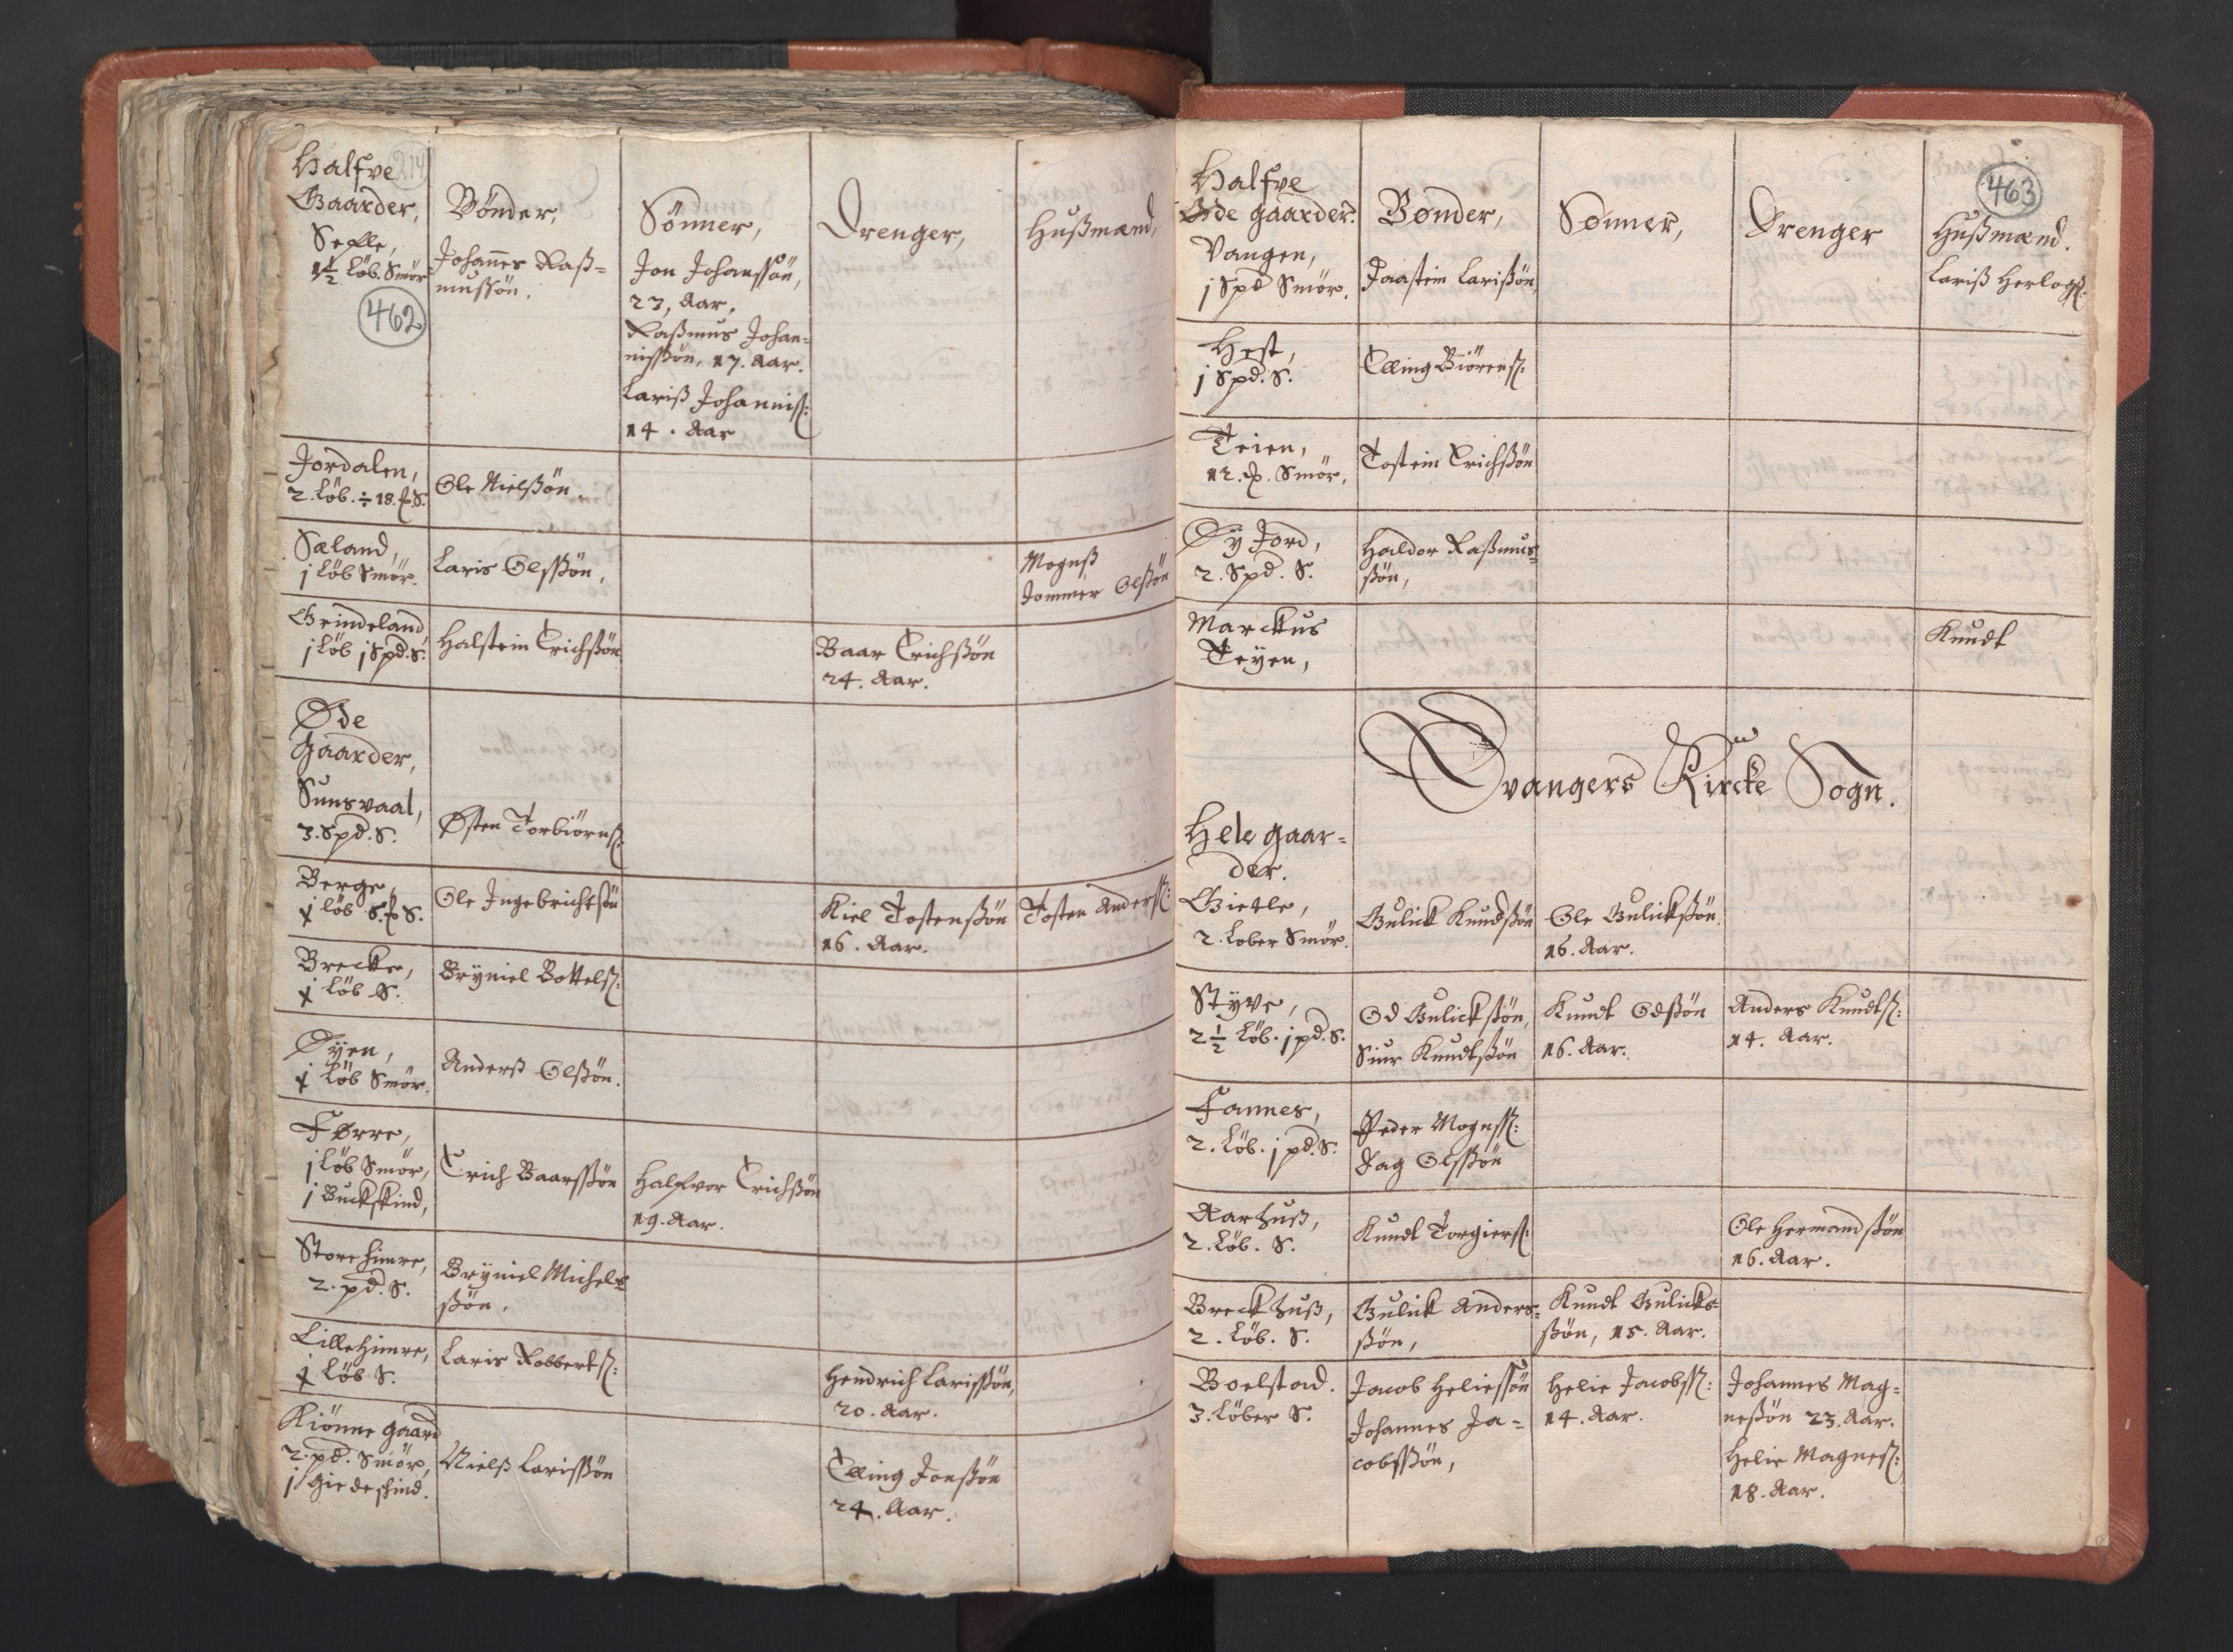 214
Halfve
Gaarder,
Bønder,
Sønner,
Drenger,
Hußmænd,
Seflle,
1½ Løb. Smør
Johannes Raß=
mussøn.
Jon Johanssøn,
23, Aar,
462
Raßmus Johan=
nissøn, 17. Aar.
Lariß Johanniss:
14. Aar
Jordalen,
2. Løb. ÷ 18. S.
Ole Nielssøn.
Sæland,
j Løb Smør.
Laris Olssøn,
Mogenß
Jommer Olssøn
Grindeland
j Løb j Spd. S.
Halstein Erichssøn
Baar Erichssøn
24. Aar.
Øde
Gaarder,
Sunsvaal,
3. Spd. S.
Østen Torbiørns:
Berge,
j Løb 6. S.
Ole Ingebrichtsøn
Kiel Tostenssøn
16. Aar.
Tosten Anderss:
Brecke,
j Løb S.
Bryniel Bottels:
Øyen,
j Løb Smør.
Anderß Olssøn.
Førre,
j Løb Smør,
j Buckskind,
Erich Baarssøn
Halfvor Erichssøn
19. Aar.
Store himre,
2. pd. S.
Bryniel Michels=
søn,
Lille himre,
j Løb S.
Laris Robberts:
Hendrich Larissøn,
20. Aar.
Kiønne gaard
2. pd. Smør,
j Giedeskind.
Nielß Larissøn
Elling Jonssøn
24. Aar.
463
Halfve
Øde gaarder.
Bønder,
Sønner,
Drenger
Hußmænd.
Vangen,
j Spd Smør.
Jaastein Larissøn,
Lariß Herlogs:
Hest,
j Spd. S.
Elling Biørens:
Teien,
12. Smør,
Tostein Erichssøn
Øy Jord,
2. Spd. S.
Haldor Raßmus=
søn,
Marckus
Teyen,
Knudt
Evangers Kircke Sogn.
Hele gaar=
der.
Gietle,
2. Løber Smør.
Gulick Knudssøn
Ole Gulickssøn.
16. Aar.
Styve,
2½ Løb. j pd. S.
Od Gulickssøn,
Siur Knudtssøn
Knudt Odssøn
16. Aar.
Anders Knudts:
14. Aar.
Fannes,
2. Løb. j pd. S.
Peder Mognss:
Dag Olssøn
Aarhuß,
2. Løb. S.
Knudt Torgierss:
Ole Hermandssøn
16. Aar.
Breckhuß,
2. Løb. S.
Gulick Anders=
søn,
Knudt Gulicks=
søn, 15. Aar.
Boelstad.
3. Løber S.
Jacob Heliessøn
Johannes Ja=
cobssøn,
Helie Jacobss:
14. Aar.
Johannes Mag=
nessøn 23. Aar.
Helie Magnes:
18. Aar.